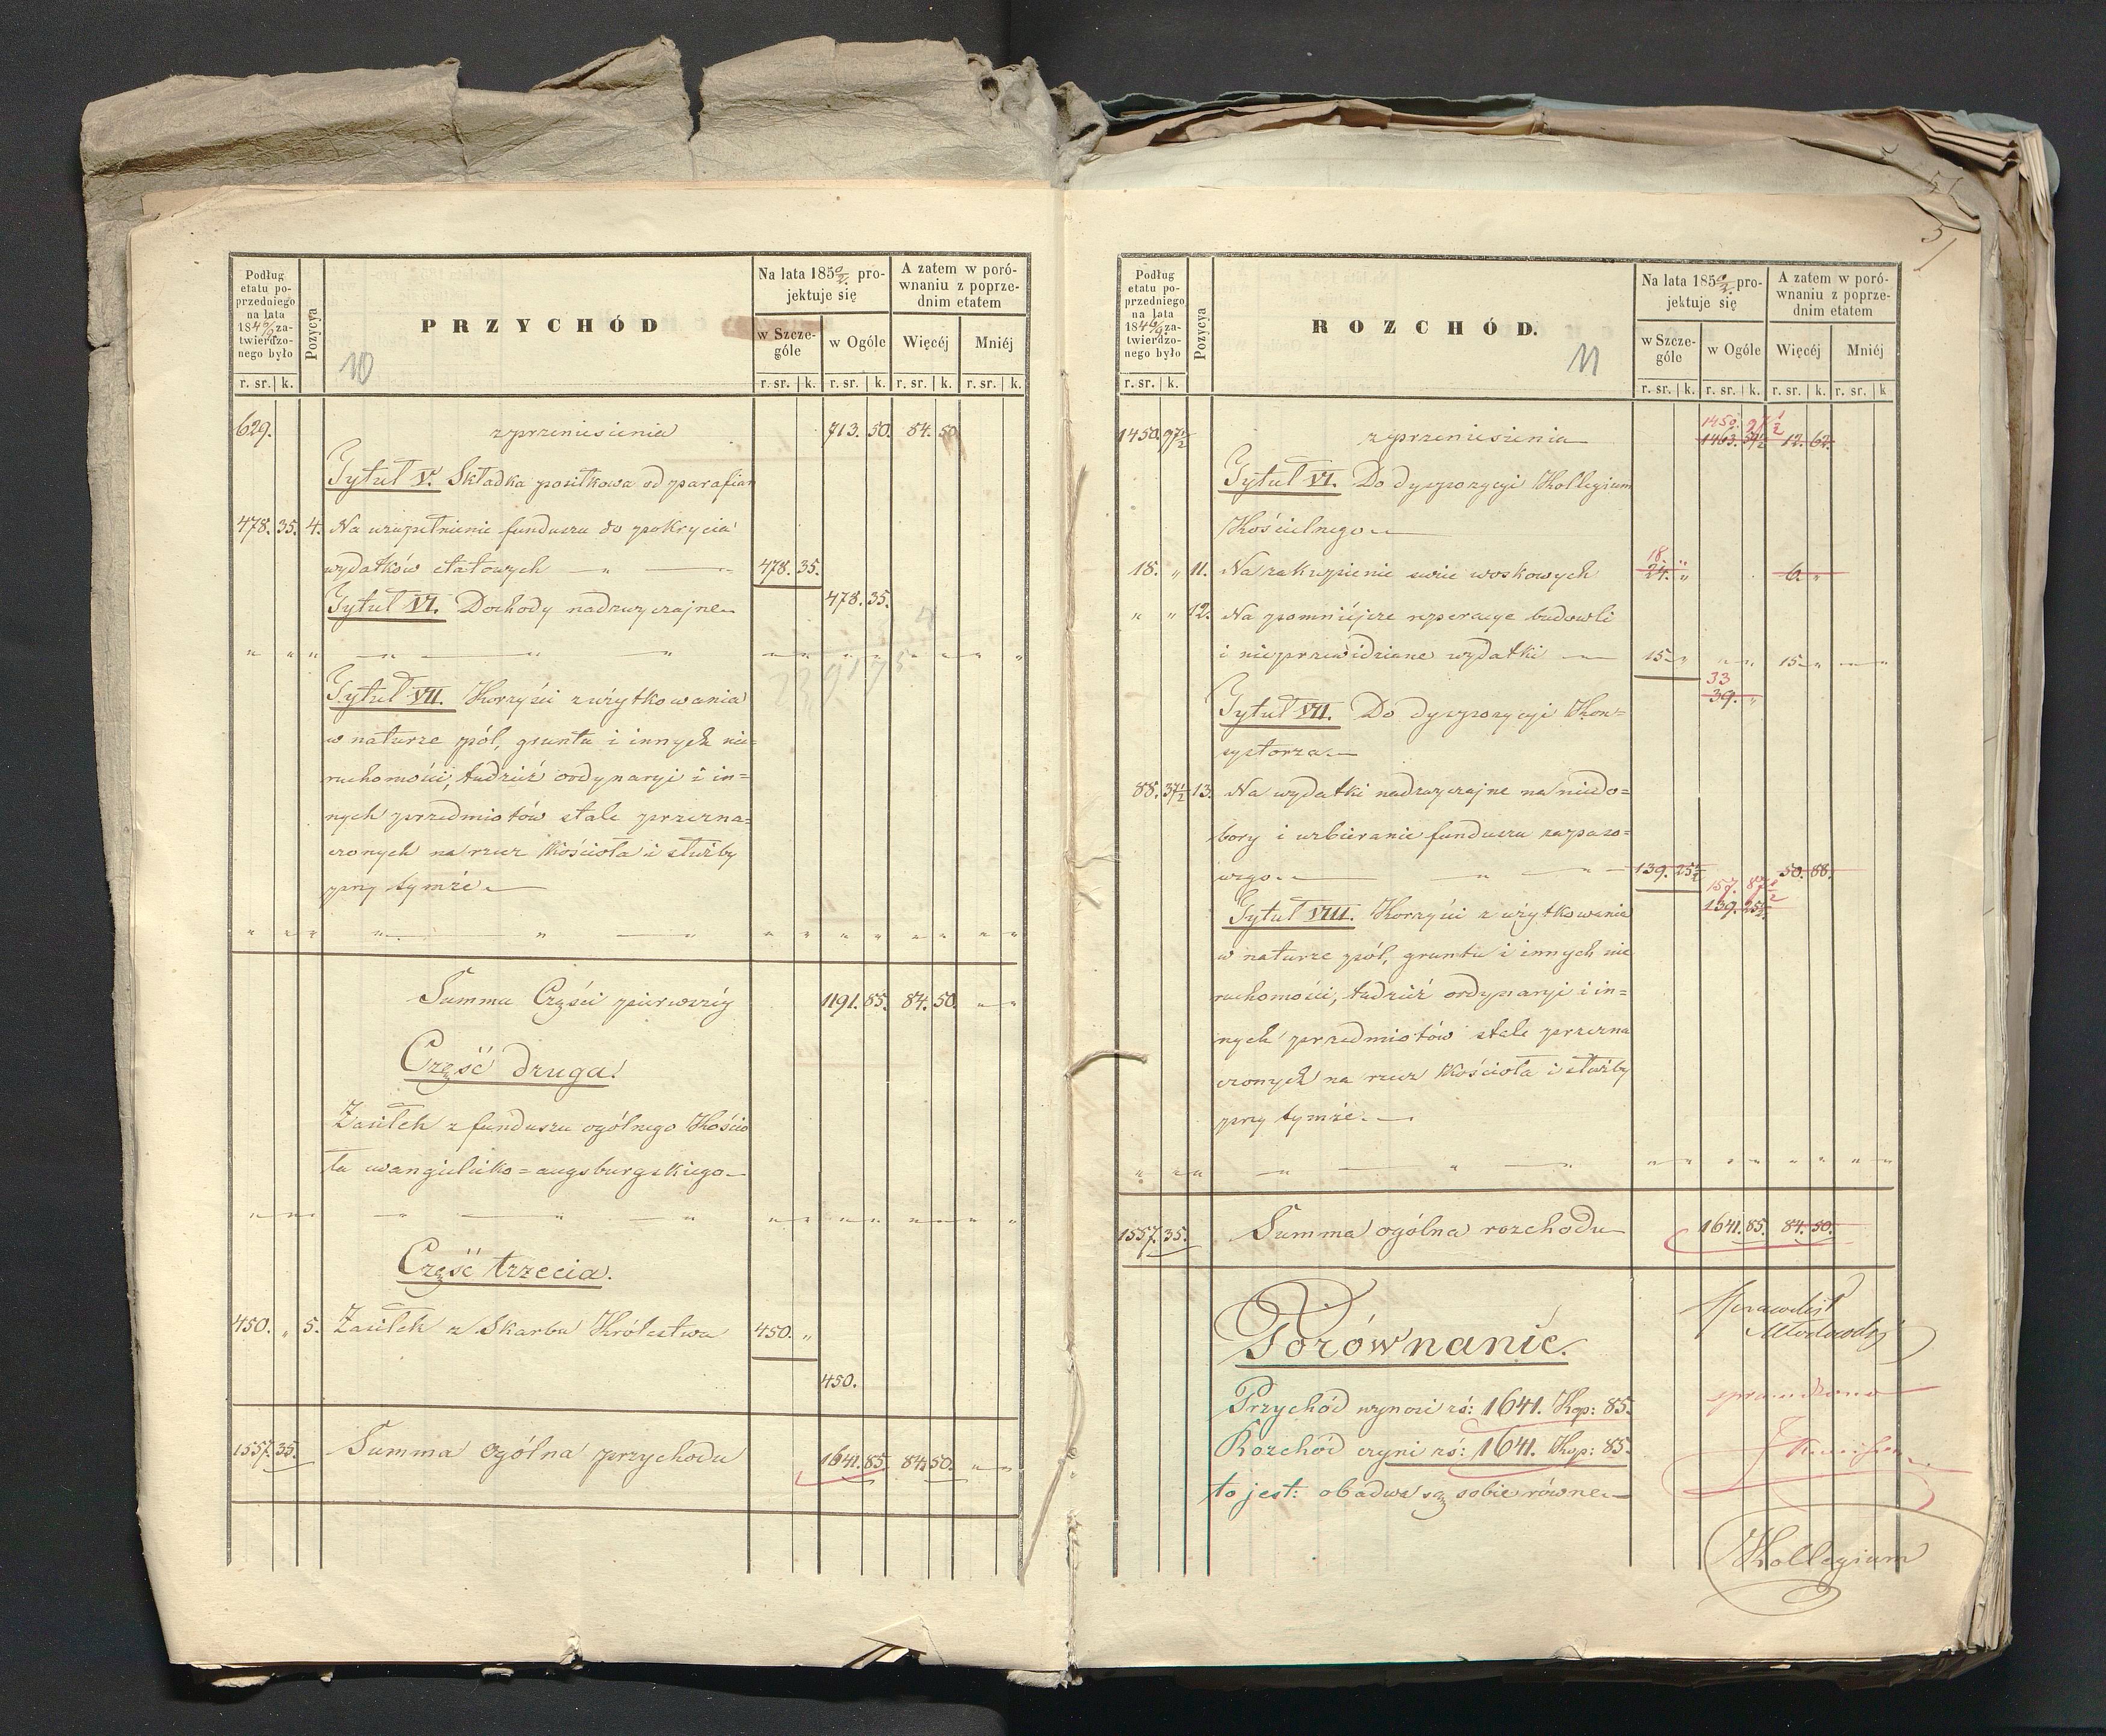 Podług etatu poprzedniego na lata 184 6/9 zatwierdzonego było
Pozycya
PRZYCHÓD
10
Na lata 185 0/2 projektuje się
A zatem w porównaniu z poprzednim etatem
w Szczególe
w Ogóle
Więcéj
Mniéj
r. sr. k. r. sr. k. r. sr. k. r. sr. k. r. sr. k.
629. z przeniesienia 713. 50. 84. 50
Tytuł V. Składka posiłkowa od parafian
478. 35. 4. Na uzupełnienie funduszu do pokrycia
wydatków etatowych — „ — 478. 35.
478. 35.
Tytuł VI. Dochody nadzwyczajne
Tytuł VII. Korzyści z użytkowania
w naturze pól, gruntu i innych nie=
ruchomości, tudzież ordynaryi i in=
nych przedmiotów stale przezna=
czonych na rzecz Kościoła i służby
przy tymże
Summa Części pierwszéj 1191. 85. 84. 50. „ „
Część druga!
Zasiłek z funduszu ogólnego Kościo
ła ewangielicko=augsburgskiego
Część trzecia.
450. „ 5. Zasiłek z Skarbu Królestwa 450. „
450.
1557. 35. Summa ogólna przychodu 1641. 85. 84. 50. „ „
51
51
Podług etatu poprzedniego na lata 184 6/9 zatwierdzonego było
Pozycya
ROZCHÓD.
11
Na lata 185 0/2 projektuje się
A zatem w porównaniu z poprzednim etatem
w Szczególe
w Ogóle
Więcéj
Mniéj
r. sr. k. r. sr. k. r. sr. k. r. sr. k. r. sr. k
1450. 97 1/2
1450. 97 1/2 z przeniesienia 1463. 59 1/2 12. 62.
Tytuł VI. Do dyspozycyi Kollegium
Kościelnego
18.
18. „ 11. Na zakupienie świec woskowych 24. „ 6. „
„ „ 12. Na pomniéjsze reperacye budowli
i nieprzewidziane wydatki 15. „ „ „ 15. „
33
39. „
Tytuł VII. Do dyspozycyi Kon=
systorza
88. 37 1/2 13. Na wydatki nadzwyczajne na niedo=
bory i uzbieranie funduszu zapaso=
wego 139. 25 1/2 50. 88.
157. 87 1/2
139. 25 1/2
Tytuł VIII. Korzyści z użytkowania
w naturze pól, gruntu i innych nie
ruchomości, tudzież ordynaryi i in=
nych przedmiotów stale przezna
czonych na rzecz Kościoła i służby
przy tymże.
1557. 35. Summa ogólna rozchodu 1641. 85. 84. 50.
Porównanie.
Przychód wynosi rś: 1641. Kop: 85.
Rozchód czyni rś: 1641. Kop: 85.
to jest: obadwa są sobie równe
Sprawdził
sprawdzono
Kollegium